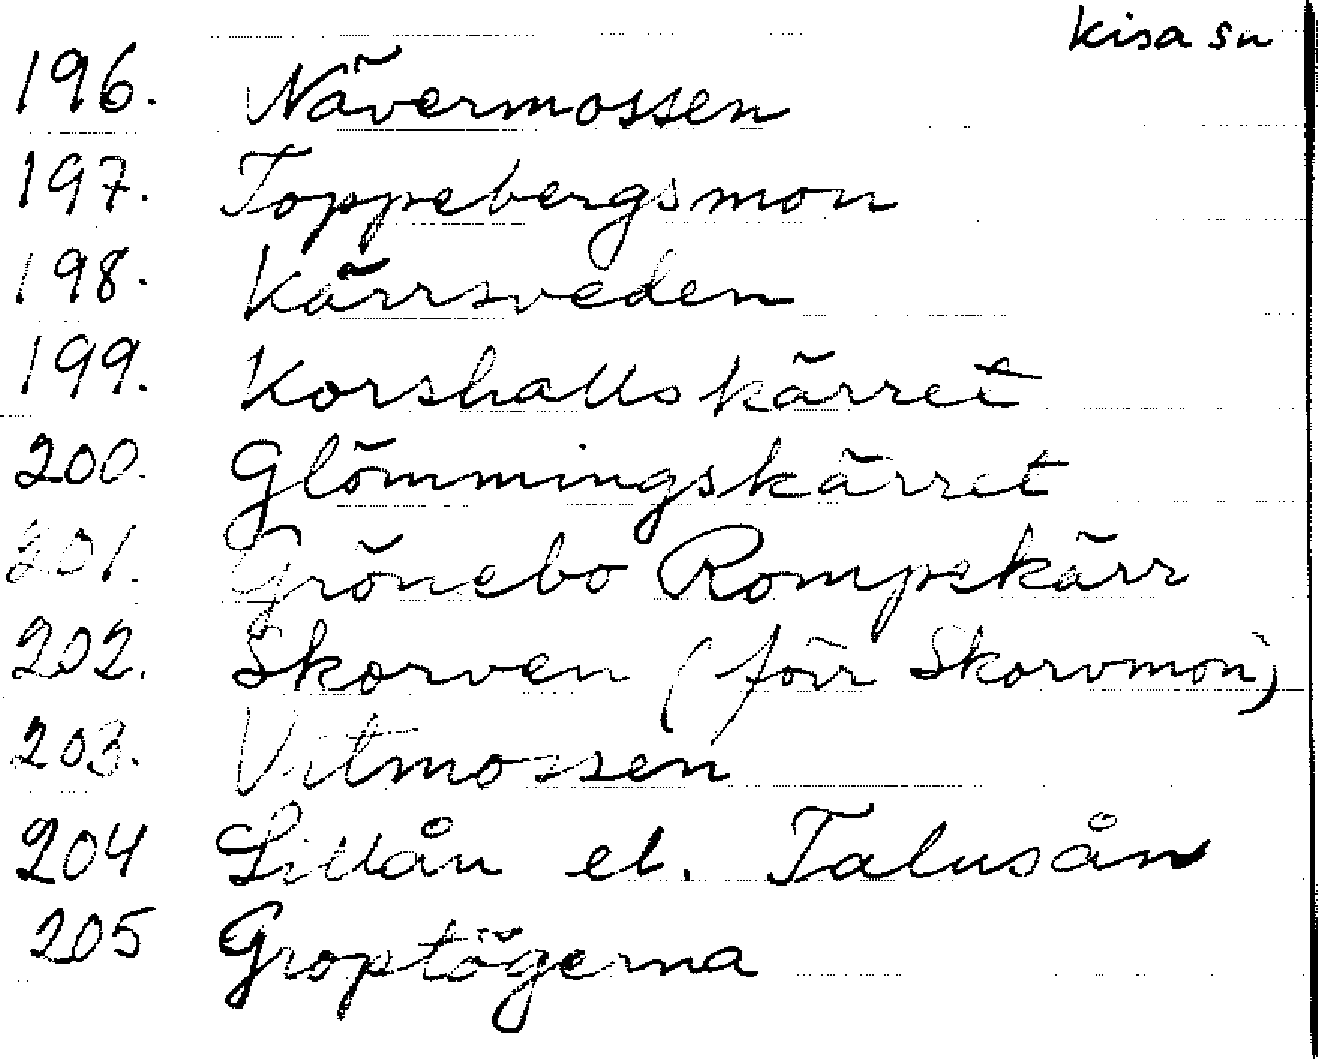 Kisa sn
196. Nävermossen
197. Toppebergsmon
198. Kärrsveden
199. Korshallskärret
200. Glömmingskärret
201. Grönebo Rompekärr
202. Skorven (förr Skorvmon)
203. Vitmossen
204 Lillån el. Talusån
205 Groptögerna